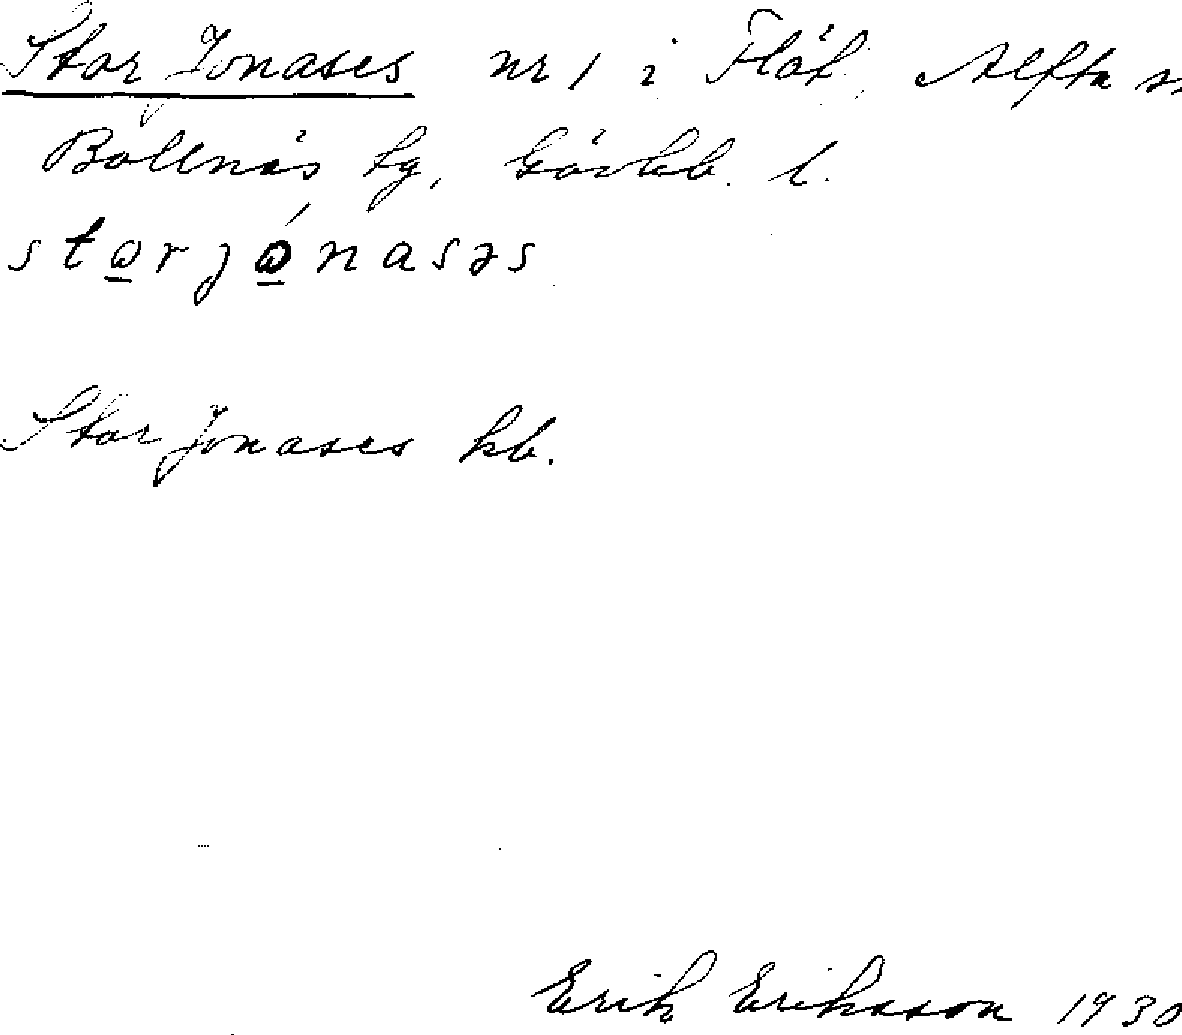 Stor Jonases nr 1 i Flät, Alfta s.
Bollnäs tg, Gävleb. l.
storjónasəs
Stor Jonases kb.
Erik Eriksson 1930